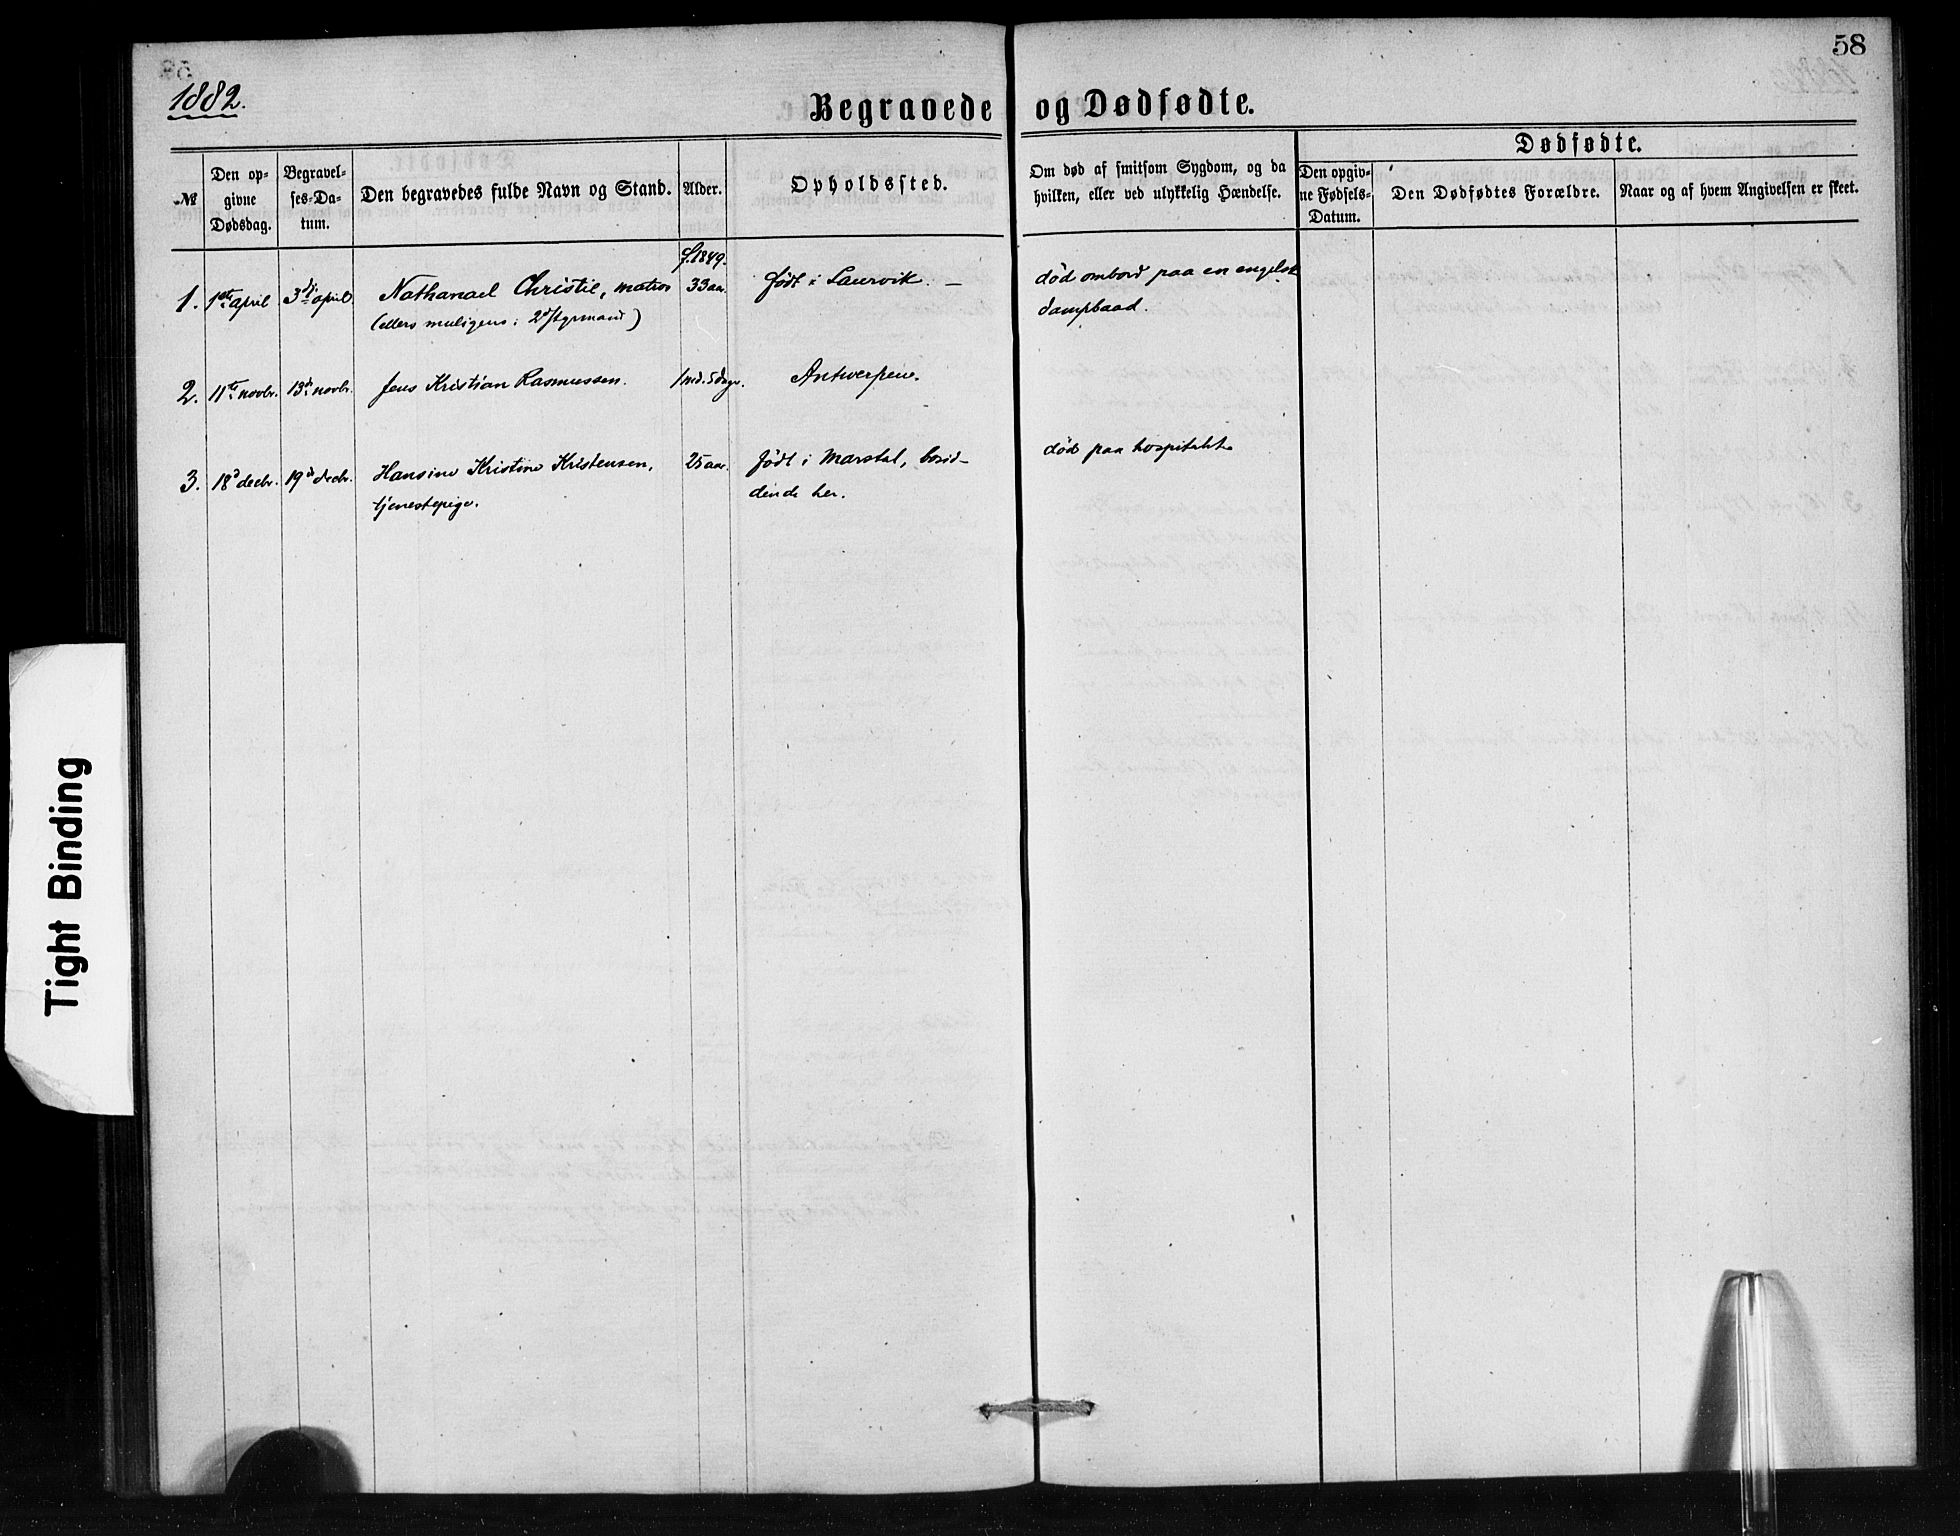 58
1882.
Begravede og Dødfødte.
Dødfødte.
№
Den op-
givne
Dødsdag.
Begravel-
ses-Da-
tum.
Den begravedes fulde Navn og Stand.
Alder.
Opholdssted.
Om død af smitsom Sygdom, og da
hvilken, eller ved ulykkelig Hændelse.
Den opgiv-
ne Fødsels-
Datum.
Den Dødfødtes Forældre.
Naar og af hvem Angivelsen er skeet.
f. 1849.
1. 1ste april 3die april Nathanael Christie, matros 33 aar. født i Laurvik. — død ombord paa en engelsk
(ellers muligens: 2d styrmand) dampbaad.
2. 11te novbr. 13de novbr. Jens Kristian Rasmussen. 1 md. 5 dage. Antwerpen.
3. 18d decbr. 19d decbr. Hansine Kristine Kristensen, 25 aar. født i Marstal, bosid- død paa hospitalet
tjenestepige. dende her.
Tight Binding